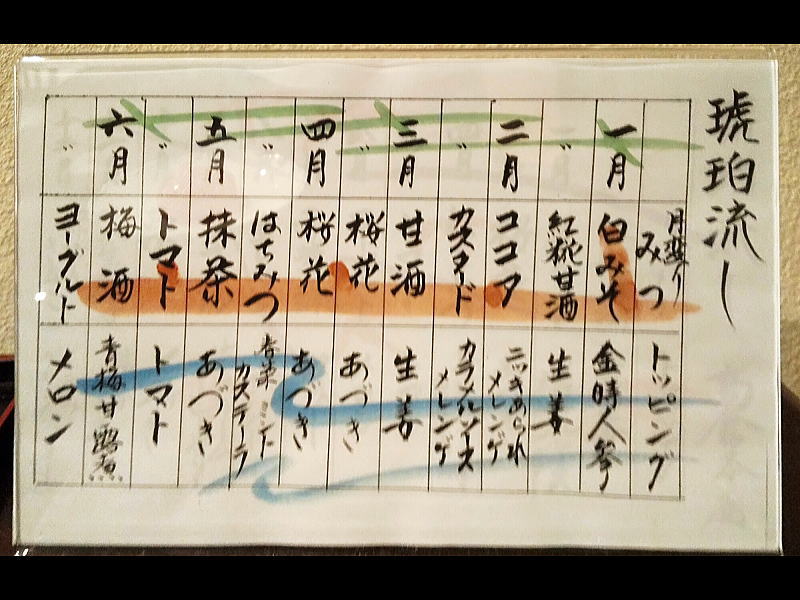 琥珀流し
月変り
みつ
トッピング
一月
白みそ
金時人参
〃
紅糀甘酒
生姜
二月
ココア
ニッキあられ
メレンゲ
〃
カスタード
カラメルソース
メレンゲ
三月
甘酒
生姜
〃
桜花
あづき
四月
桜花
あづき
〃
はちみつ
カステーラ
五月
抹茶
あづき
〃
トマト
トマト
六月
梅酒
青梅甘露煮
〃
ヨーグルト
メロン